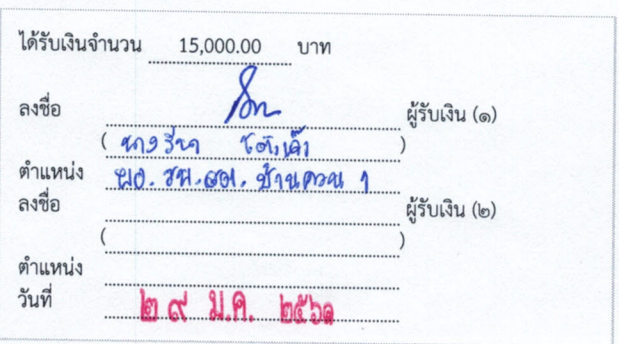 ได้รับเงินจำนวน 15,000.00 บาท
ลงชื่อ ผู้รับเงิน (๑)
( นางรีนา )
ตำแหน่ง ผอ. รพ.สต. บ้านควน 1
ลงชื่อ ผู้รับเงิน (๒)
( )
ตำแหน่ง
วันที่ ๒๙ ม.ค. ๒๕๖๑